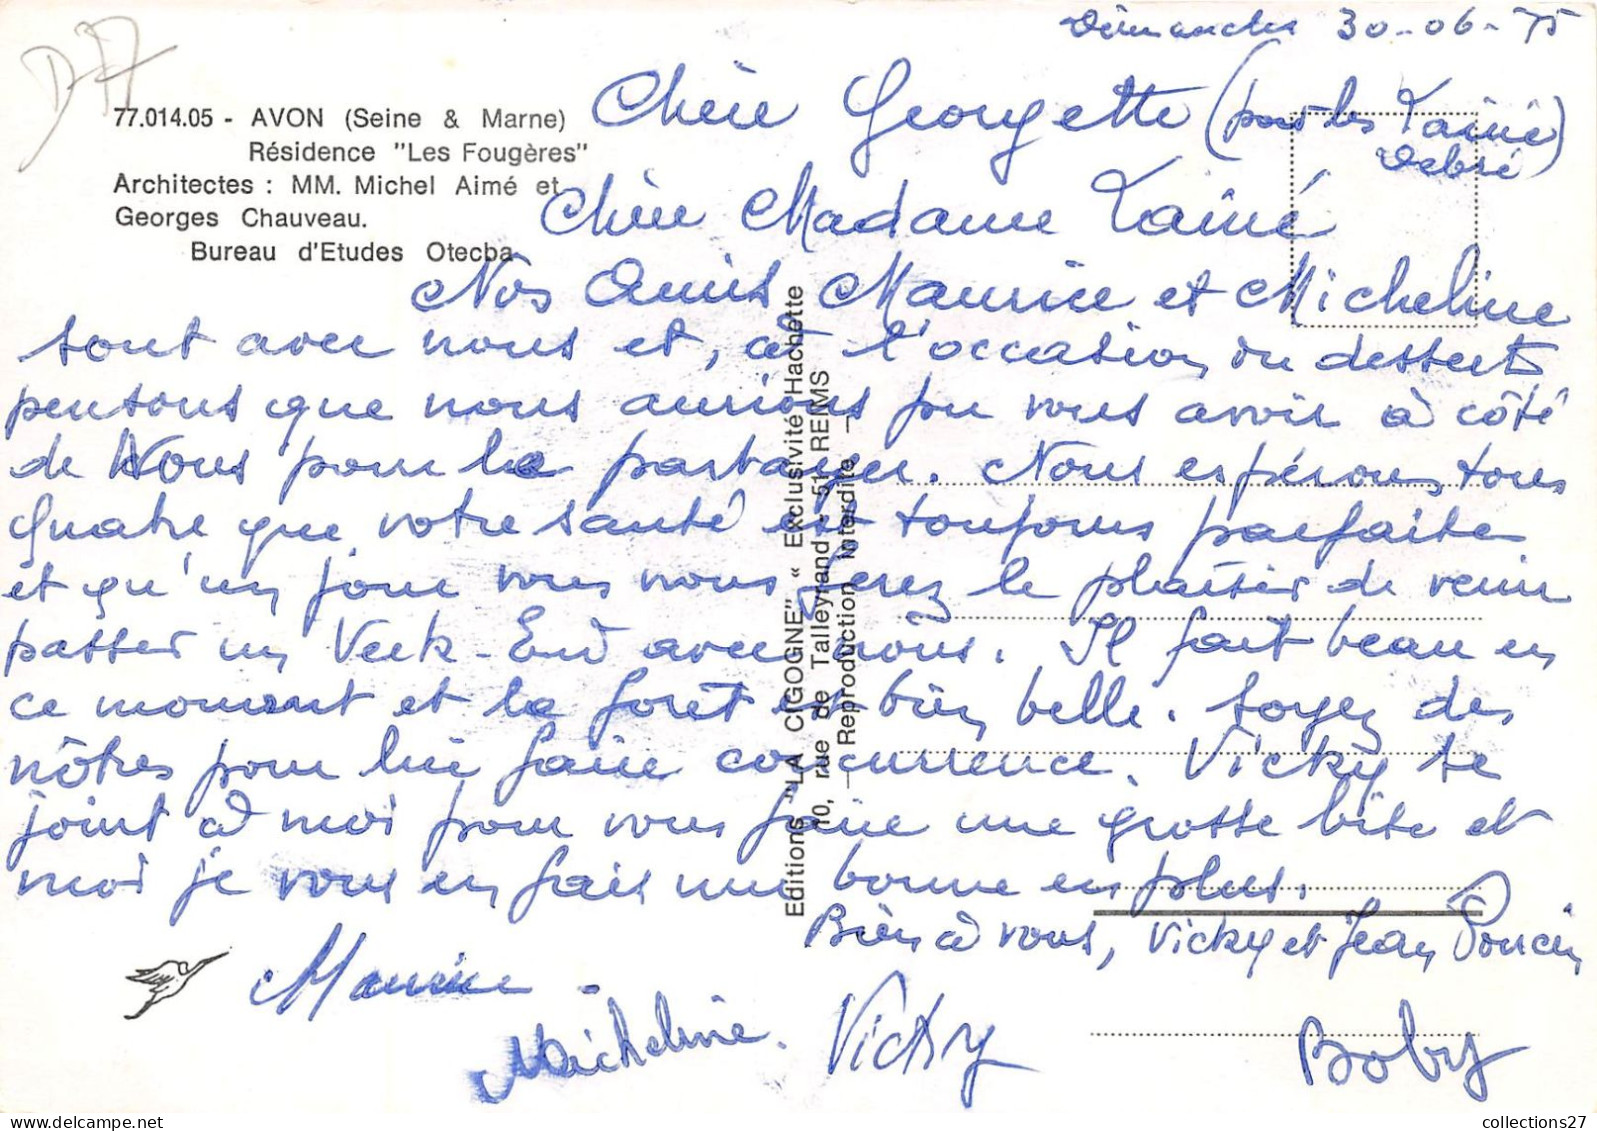 D 77
Dimanche 30-06-75
77.014.05 - AVON (Seine & Marne)
Résidence "Les Fougères"
Architectes : MM. Michel Aimé et
Georges Chauveau.
Bureau d'Etudes Otecba
Chère Georgette (pour les Lainé
Debré)
Chère Madame Lainé
Nos Amis Maurice et Micheline
sont avec nous et, à l'occasion du dessert
pensons que nous aurions pu vous avoir à côté
de Nous pour le partager. Nous espérons tous
Quatre que votre santé est toujours parfaite
et qu'un jour vous nous ferez le plaisir de venir
passer un Week-End avec nous. Il fait beau en
ce moment et la forêt est bien belle. Soyez des
nôtres pour lui faire concurrence. Vicky se
joint à moi pour vous faire une grosse bise et
moi je vous en fais une bonne en plus.
Bien à vous, Vicky et Jean
Maurice -
Micheline.
Vicky
Boby
Editions "LA CIGOGNE" « Exclusivité Hachette
10, rue de Talleyrand - 51 REIMS
— Reproduction interdite —
collections27